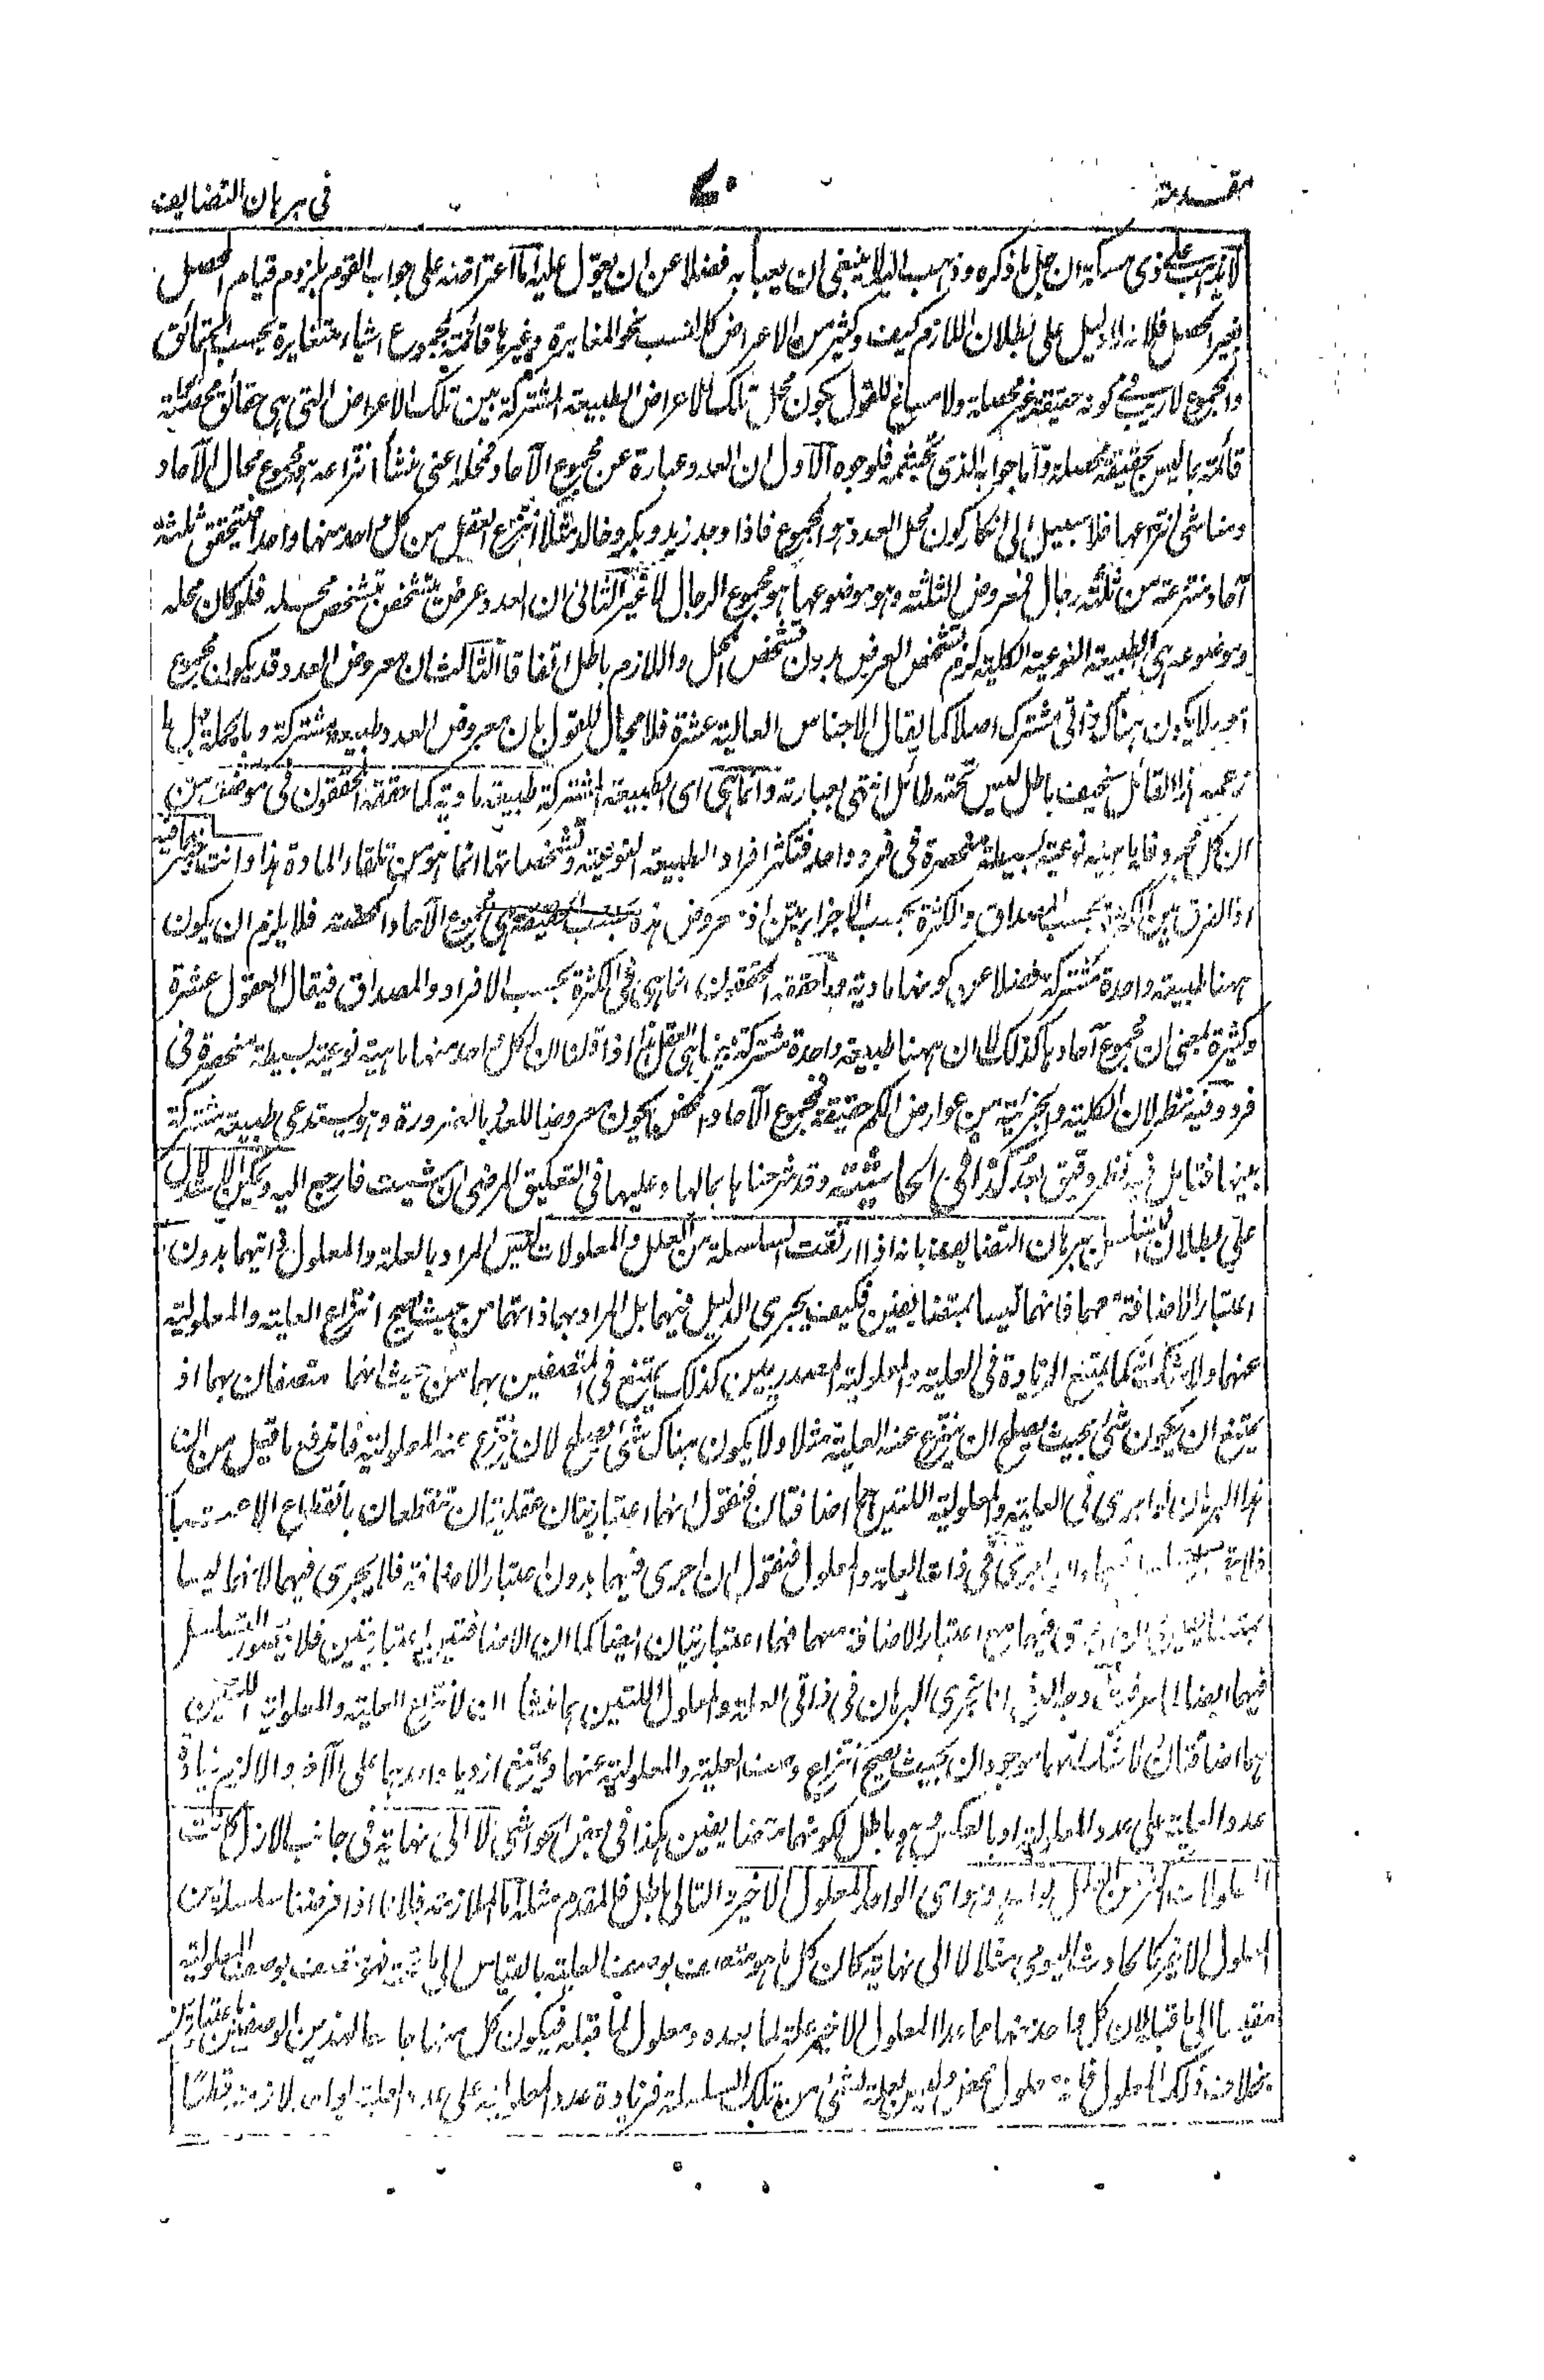 مقدمة
٤٠
في برهان التضايف
لا يذهب على ذي مسكة ان جل ما ذكره وذهب اليه لا ينبغي ان يعبأ به فضلا عن ان يعول عليه اما اعتراضه على جواب القوم بلزوم قيام المحصل
بغير المحصل فلانه لا دليل على بطلان اللازم كيف وكثير من الاعراض كالنسب نحو المغايرة وغيرها قائمة بمجموع اشياء متغايرة بحسب الحقائق
والمجموع لا ريب في كونه حقيقة غير محصلة ولا مساغ للقول بكون محل تلك الاعراض الطبيعة المشتركة بين تلك الاعراض التي هي حقائق محصلة
قائمة بما ليس بحقيقة محصلة واما جواب الذي تجشمه فلوجوه الاول ان العدد عبارة عن مجموع الآحاد فمحله اعني منشأ انتزاعه هو مجموع محال الآحاد
ومناشي انتزاعها فلا سبيل الى انكار كون محل العدد هو المجموع فاذا وجد زيد وبكر وخالد مثلا انتزع العقل من كل واحد منها واحدا فيتحقق ثلثة
آحاد منتزعة من ثلثة رجال فمعروض الثلثة وهو موضوعها هو مجموع الرجال لا غير الثاني ان العدد عرض يتشخص بتشخص محله فلو كان محله
وموضوعه هي الطبيعة النوعية الكلية لزم تشخص العرض بدون تشخص المحل واللازم باطل اتفاقا الثالث ان معروض العدد قد يكون مجموع
امور لا يكون هناك ذاتي مشترك اصلا كما يقال الاجناس العالية عشرة فلا مجال للقول بان معروض العدد طبيعة مشتركة وبالجملة كل ما
زعمه هذا القائل سخيف باطل ليس تحته طائل انتهى بعبارته وانما هي اي الطبيعة المشتركة طبيعة مادية كما حققه المحققون في موضعه من
ان كل مجرد فماهيته نوعية بسيطة منحصرة في فرد واحد فتكثر افراد الطبيعة النوعية وتشخصاتها انما هو من تلقاء المادة هذا وانت
اذ الفرق بين الكثرة بحسب المصداق والكثرة بحسب الاجزاء بين اذ معروض هذه بحسب الحقيقة هي مجموع الآحاد المحضة فلا يلزم ان يكون
ههنا طبيعة واحدة مشتركة فضلا عن كونها مادية وما حققه المحققون انما هي في الكثرة بحسب الافراد والمصداق فيقال العقول عشرة
وكثيرة بمعنى ان مجموع آحادها كذلك لا ان ههنا طبيعة واحدة مشتركة بينها هي العقل اذا قلنا ان لكل واحد منها ماهية نوعية بسيطة منحصرة في
فرد وفيه نظر لان الكلية والجزئية من عوارض الكم حقيقة فمجموع الآحاد المحض يكون معروضا للعدد بالضرورة وهو يستدعي طبيعة مشتركة
بينها فتامل فيه نظر دقيق بعد كذا في الحاشية وقد شرحناها بمالها وعليها في التعليق المرضي ان شئت فارجع اليه ويمكن الاستدلال
على بطلان التسلسل ببرهان التضايف بانه اذا ارتقت السلسلة من العلل والمعلولات ليس المراد بالعلة والمعلول ذاتيهما بدون
اعتبار الاضافة معهما فانهما ليسا بمتضايفين فكيف يجري الدليل فيهما بل المراد بهما ذاتهما من حيث يصح انتزاع العلية والمعلولية
عنهما ولا شك انه كما يمتنع الزيادة في العلية والمعلولية المصدريين كذلك يمتنع في المتصفين بهما من حيث انهما متصفان بهما اذ
يمتنع ان يكون شيء بحيث يصلح ان ينتزع عنه العلية مثلا ولا يكون هناك شيء يصلح لان ينتزع عنه المعلولية فاندفع ما قيل من ان
هذا البرهان اما يجري في العلية والمعلولية اللتين هما اضافتان فنقول انهما اعتباريتان عقليتان تنقطعان بانقطاع الاعتبار
في ذات العلة والمعلول فنقول ان اجري فيهما بدون اعتبار الاضافة فلا يجري فيهما لانهما ليسا
فيهما مع اعتبار الاضافة معهما فهما اعتباريتان ايضا كما ان الاضافتين اعتباريتين فلا يتصور التسلسل
فيهما ايضا انا نجري البرهان في ذاتي العلة والمعلول اللتين هما منشأ ان لانتزاع العلية والمعلولية اللتين
هما اضافتان لا شك انهما موجودان بحيث يصح انتزاع وصف العلية والمعلولية عنهما ويمتنع ازدياد احدهما على الآخر والا لزم زيادة
عدد العلية على عدد المعلولية او بالعكس وهو باطل لكونهما متضايفين هكذا في بعض الحواشي لا الى نهاية في جانب الازل كانت
المعلولات اكثر من العلل بواحد وهو اي الواحد المعلول الاخير والتالي باطل فالمقدم مثله اما الملازمة فلانا اذا فرضنا سلسلة من
المعلول الاخير كالحادث اليومي مثلا لا الى نهاية كان كل ما هو متصف بوصف العلية بالقياس الى ما تحته فهو متصف بوصف المعلولية
مقيسا الى ما قبله لان كل واحد منهما ما عدا المعلول الاخير علة لما بعده ومعلول لما قبله فيكون كل منها جامعا لهذين الوصفين باعتبارين
بخلاف ذلك المعلول فانه معلول محض وليس بعلة لشيء من تلك السلسلة فزيادة عدد المعلولية على عدد العلية بواحد لازمة قطعا